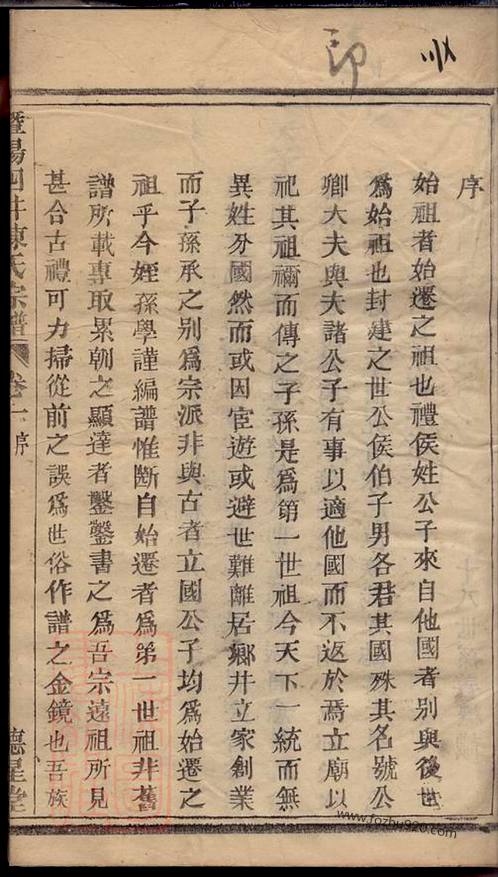 序
始祖者始遷之祖也禮侯姓公子來自他國者別與後世
為始祖也封建之世公侯伯子男各君其國殊其名號公
卿大夫與夫諸公子有事以適他國而不返於焉立廟以
祀其祖禰而傳之子孫是為第一世祖今天下一統而無
異姓分國然而或因宦遊或避世難離居鄉井立家創業
而子孫承之別為宗派非與古者立國公子均為始遷之
祖乎今姪孫學謹編譜惟斷自始遷者為第一世祖非舊
譜所載專取累朝之顯達者鑿鑿書之為吾宗遠祖所見
甚合古禮可力掃從前之誤為世俗作譜之金鏡也吾族
暨陽四井陳氏宗譜 卷一 序 德星堂
www.fozhu920.com